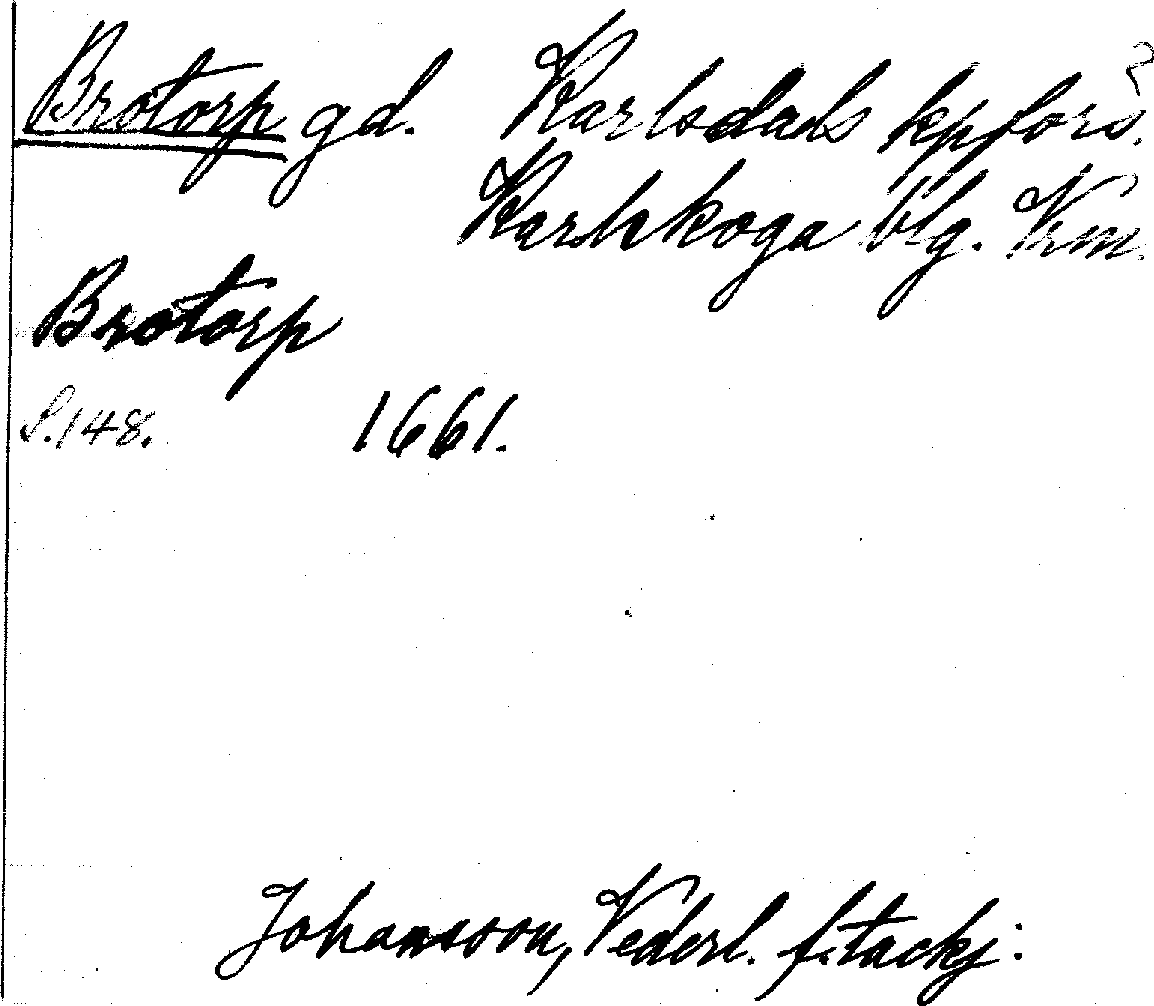 Brotorp gd. Karlsdals kpförs.
Karlskoga blg. Vrm.
Brotorp
S.148. 1661.
Johansson, Vederl.